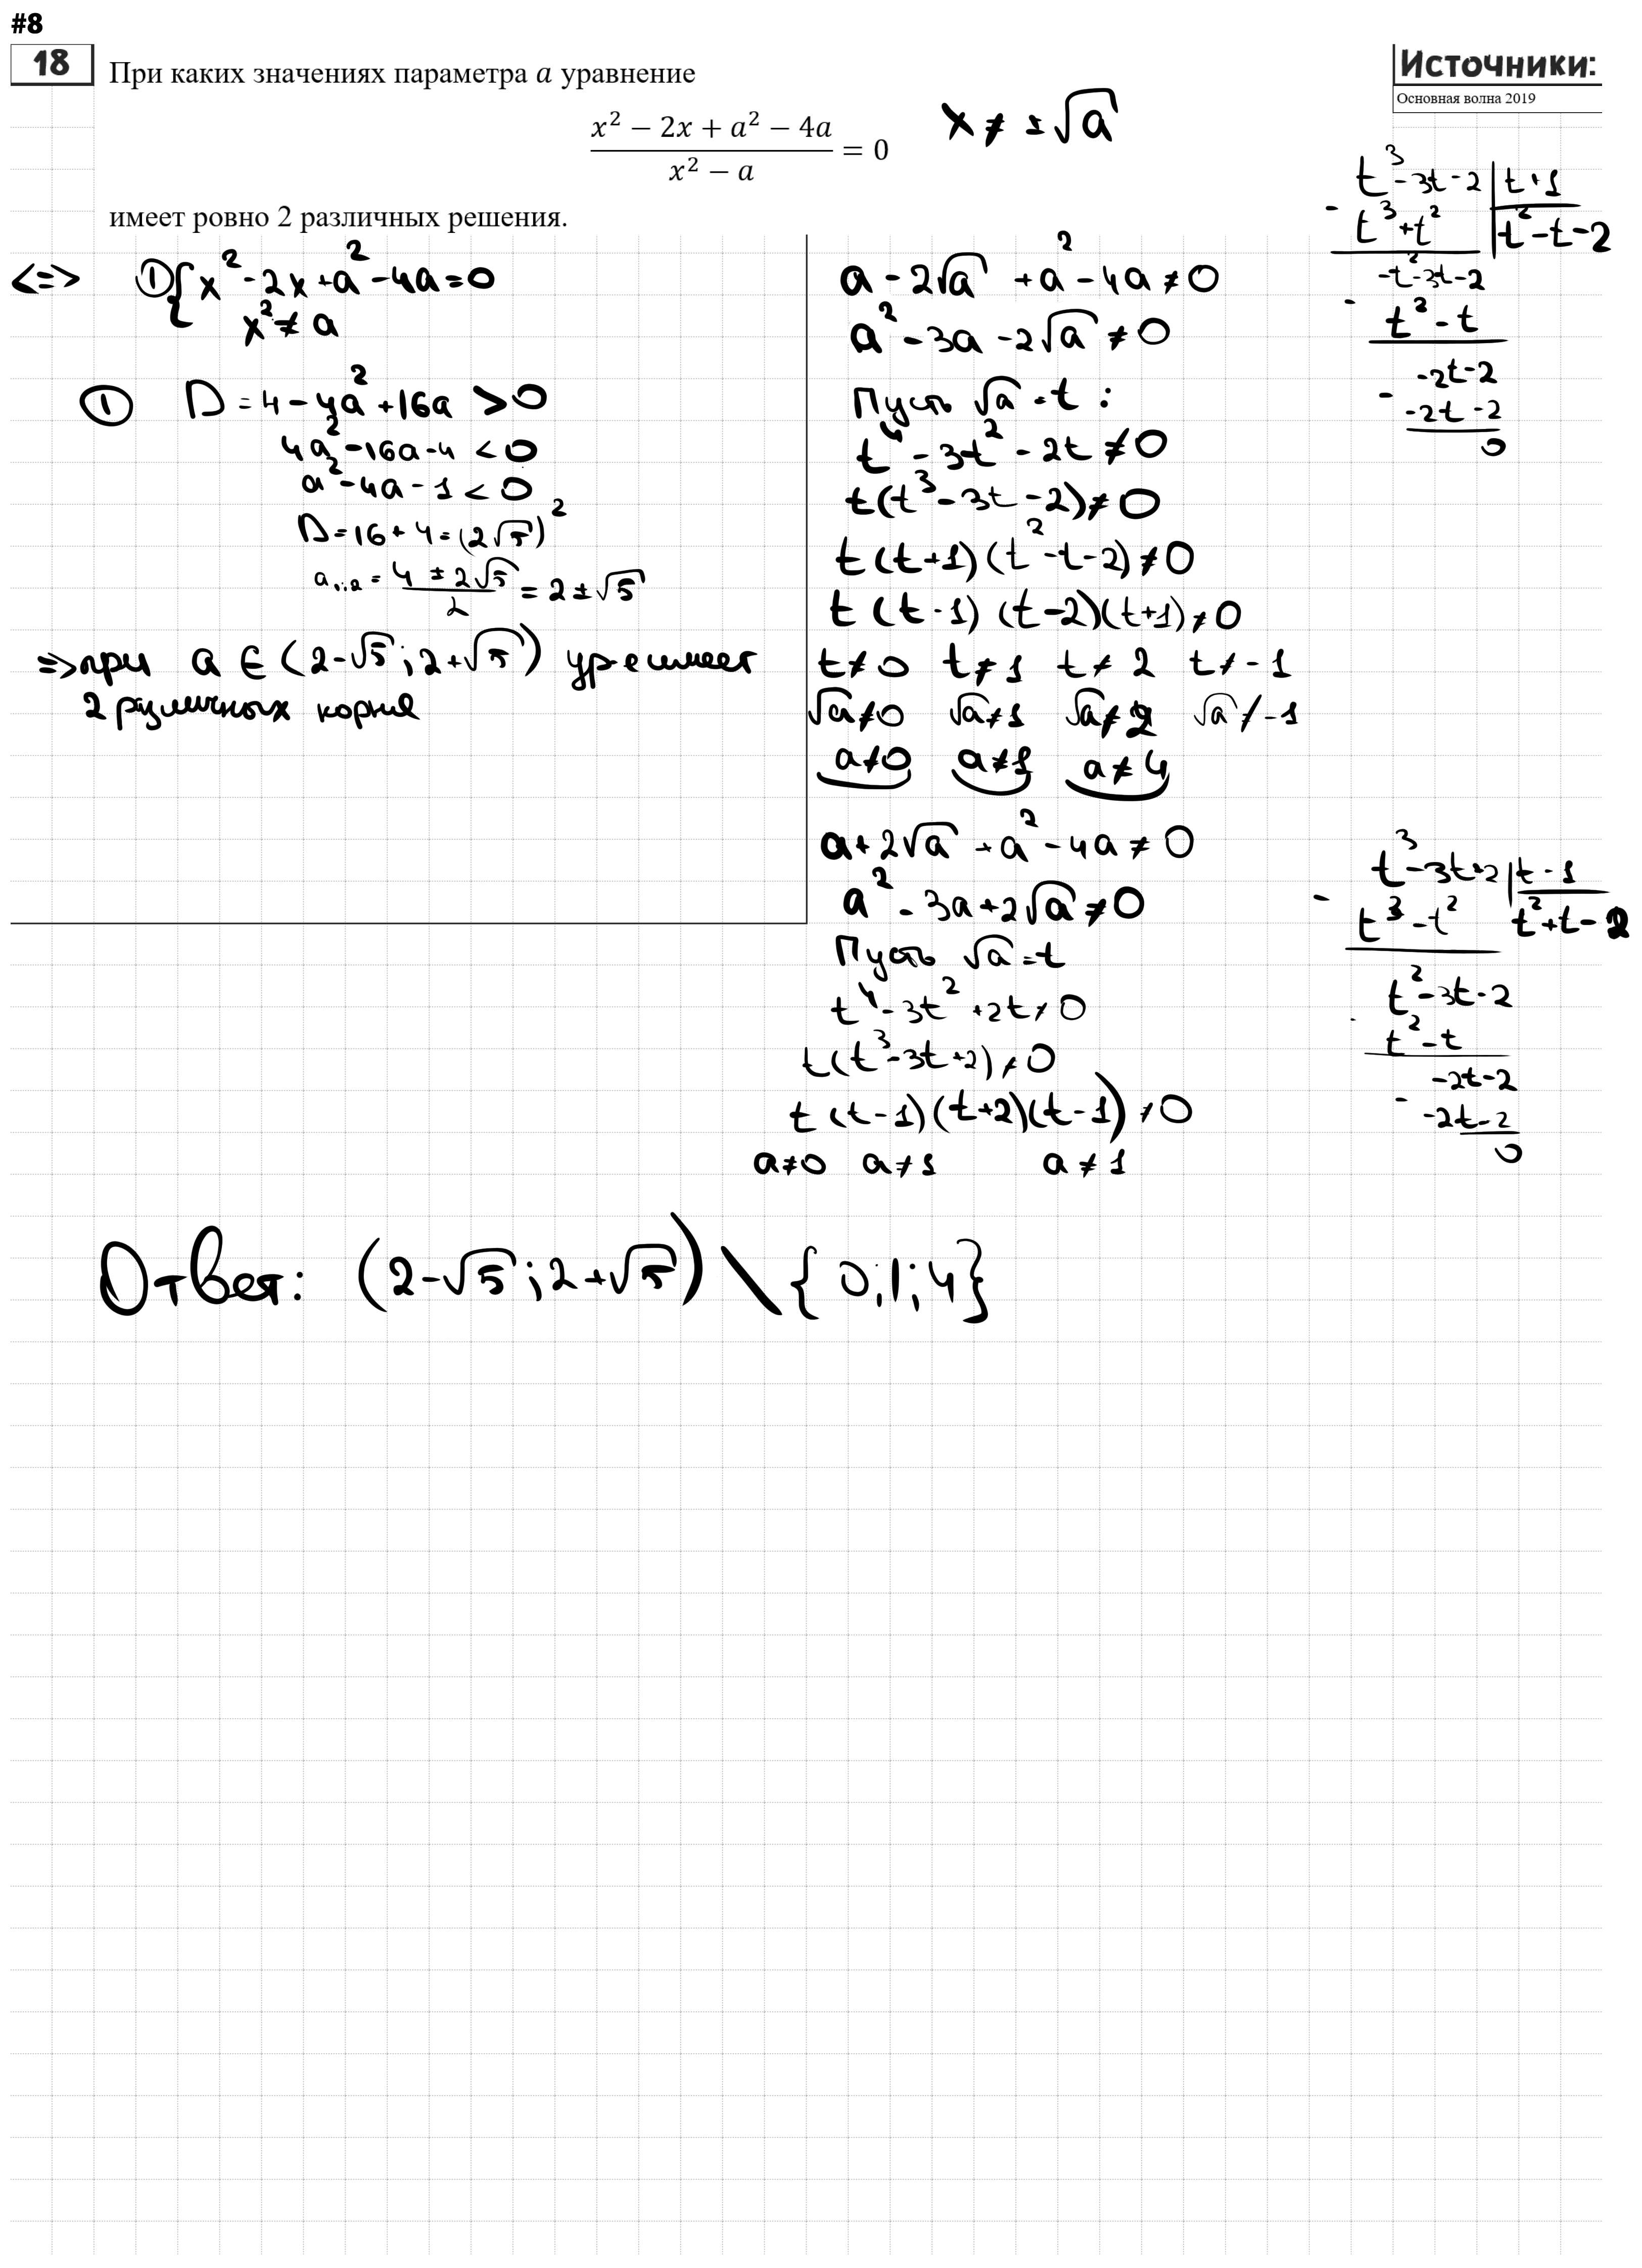 #8
18
При каких значениях параметра a уравнение
Источники:
Основная волна 2019
(x² − 2x + a² − 4a)/(x² − a) = 0
x ≠ ±√a
имеет ровно 2 различных решения.
<=> ① { x² - 2x + a² - 4a = 0
x² ≠ a
① D = 4 - 4a² + 16a > 0
4a² - 16a - 4 < 0
a² - 4a - 1 < 0
D = 16 + 4 = (2√5)²
a₁;₂ = (4 ± 2√5)/2 = 2 ± √5
=> при a ∈ (2-√5; 2+√5) ур-е имеет
2 различных корня
a - 2√a + a² - 4a ≠ 0
a² - 3a - 2√a ≠ 0
Пусть √a = t :
t⁴ - 3t² - 2t ≠ 0
t(t³ - 3t - 2) ≠ 0
t(t+1)(t² - t - 2) ≠ 0
t(t-1)(t-2)(t+1) ≠ 0
t ≠ 0 t ≠ 1 t ≠ 2 t ≠ -1
√a ≠ 0 √a ≠ 1 √a ≠ 2 √a ≠ -1
a ≠ 0 a ≠ 1 a ≠ 4
a + 2√a + a² - 4a ≠ 0
a² - 3a + 2√a ≠ 0
Пусть √a = t
t⁴ - 3t² + 2t ≠ 0
t(t³ - 3t + 2) ≠ 0
t(t-1)(t+2)(t-1) ≠ 0
a ≠ 0 a ≠ 1 a ≠ 1
t³ - 3t - 2 | t + 1
- t³ + t² | t² - t - 2
-t² - 3t - 2
- t² - t
-2t - 2
- -2t - 2
0
t³ - 3t + 2 | t - 1
- t³ - t² | t² + t - 2
t² - 3t - 2
- t² - t
-2t - 2
- -2t - 2
0
Ответ: (2-√5; 2+√5) \ {0;1;4}